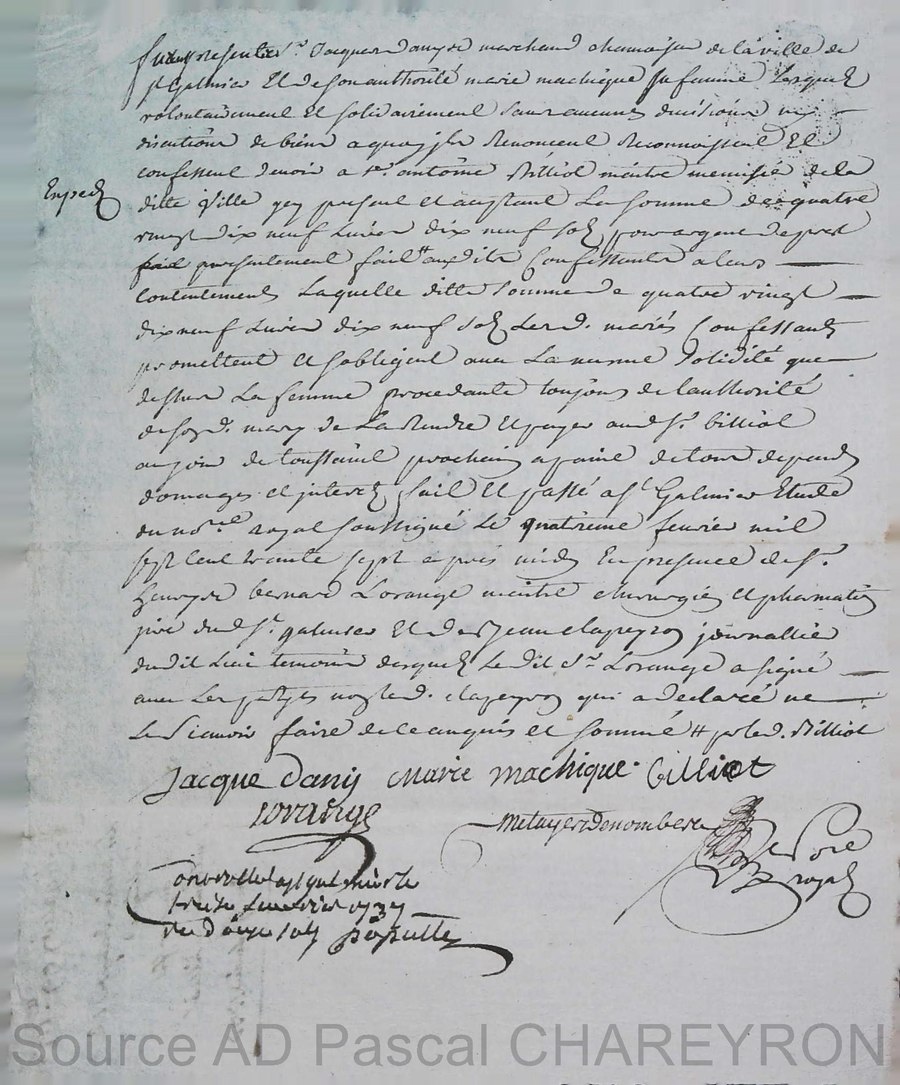 Furent presents Sr. Jacques danys marchand chamoiseur de la ville de
st Galmier Et de son authorité marie machique sa femme Lesquels
volontairement Et solidairement sans aucune division ny
discution de biens a quoy ils Renoncent Reconnoissent Et
confessent devoir a sr. antoine Billiot maitre menusier de la
Exped
ditte Ville icy present et acceptant La somme de quatre
vingt dix neuf Livres dix neuf sols pour argent de pret
presentement fait auxdits Confessants a leur
Contentement Laquelle ditte somme de quatre vingt
dix neuf Livres dix neuf sols Lesd. mariés Confessants
promettent Et sobligent avec La meme solidité que
dessus La femme procedante toujours de Lauthorité
de sond. mary de La Rendre Et payer aud. Sr. billiot
au jour de toussaint prochain a paine de tous depends
domages et interets fait Et passé a st Galmier Etude
du nore. royal soussigné Le quatrieme fevrier mil
sept cent trente sept apres midy En presence de sr.
bernard Lorange maitre chirurgien et
dud. st. galmier Et de Jean clapeyron journallier
dudit Lieu temoins desquels Le dit Sr. Lorange a signé
avec Les parties non led. clapeyron qui a declaré ne
Le scavoir faire de ce enquis et sommé # led. Billiot
Jacque danij Marie Machique. billiot
lorange
nore
royal
Controllé a st galmier le
treize fevrier 1737
Reçu douze sols
Source AD Pascal CHAREYRON